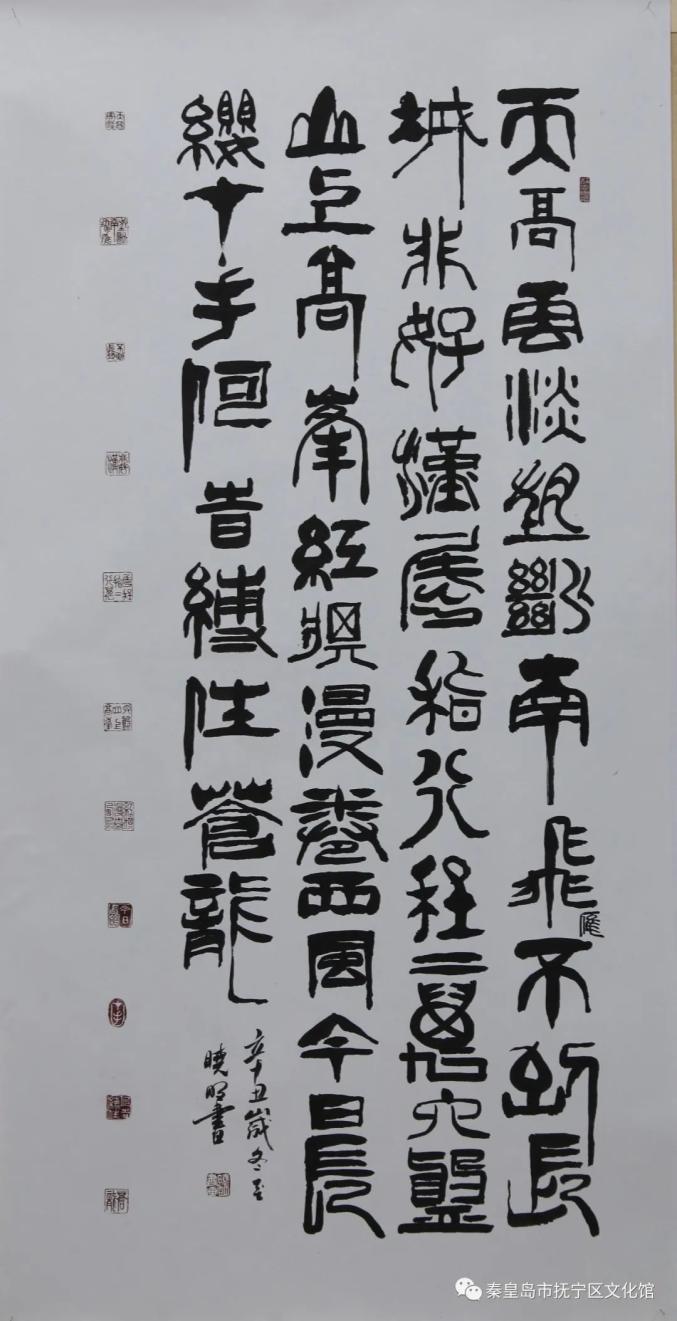 天高雲淡望斷南飛雁不到長
城非好漢屈指行程二萬六盤
山上高峯紅旗漫卷西風今日長
纓在手何時縛住蒼龍
辛丑歲冬至
曉明書
秦皇岛市抚宁区文化馆